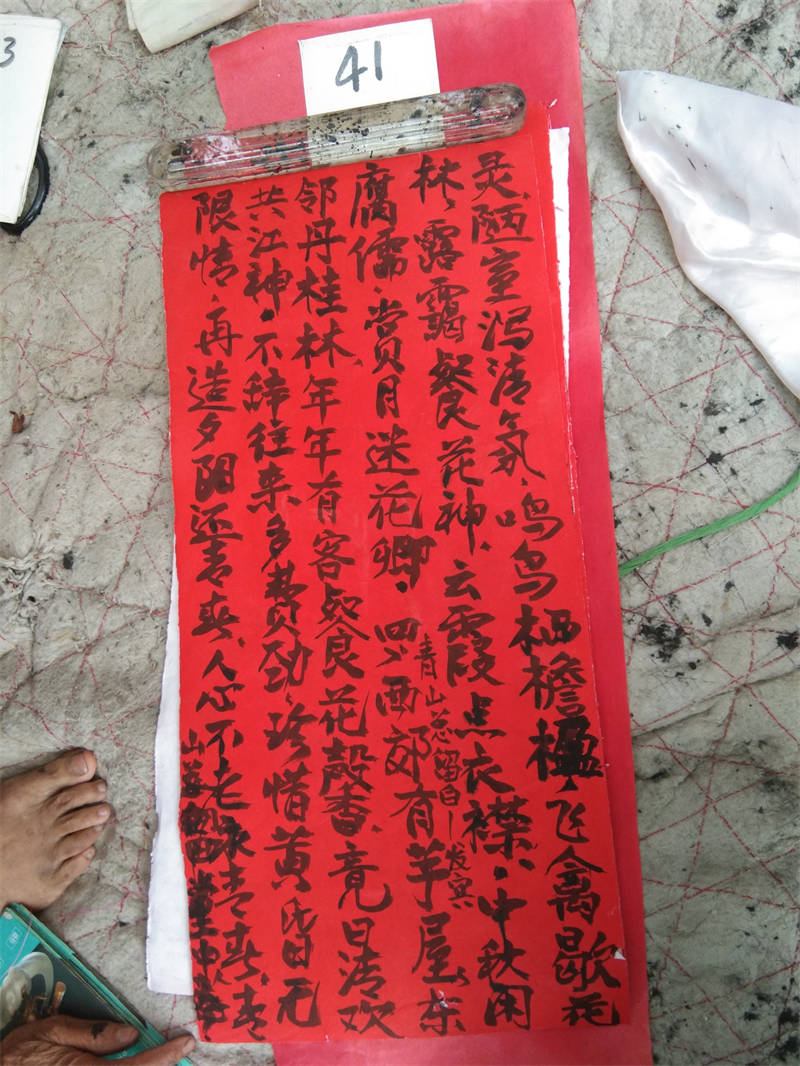 41
3
灵陋室泻清氛、鸣鸟栖檐楹、飞禽歇花
林、露霭餐花神、云霞点衣襟。中秋闲
腐儒、赏月迷花卿。四、西郊有芋屋、东
邻丹桂林、年年有客餐花馨香、竟日清欢
共江神。不辞往来多费劲、珍惜黄昏无
限情、再造夕阳还青春、人心不老永青春、
青山 留白